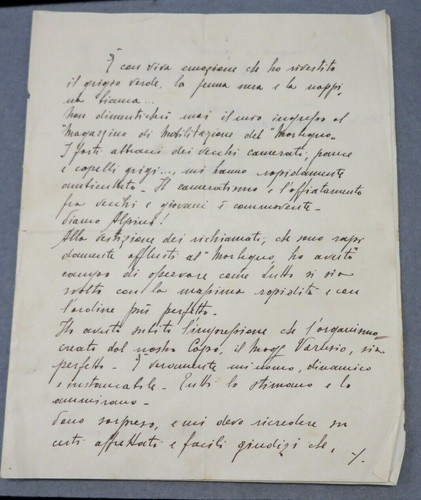 È con viva emozione che ho rivestito
il grigio verde, la penna nera e la nappi,
na bianca...
Non dimenticherò mai il mio ingresso al
Magazzino di Mobilitazione del "Morbegno.
I forti abbracci dei vecchi camerati, pance
e capelli grigi..., mi hanno rapidamente
ambientato. Il cameratismo e l'affiatamento
fra vecchi e giovani è commovente.
Siamo Alpini!
Alla vestizione dei richiamati, che sono rapi,
damente affluiti al "Morbegno, ho avuto
campo di osservare come tutto si sia
svolto con la massima rapidità e con
l'ordine più perfetto.
Ho avuto subito l'impressione che l'organismo
creato dal nostro Capo, il Magg. sia
perfetto. È veramente un uomo, dinamico
e instancabile. Tutti lo stimano e lo
ammirano.
Sono sorpreso, e mi devo ricredere su
certi affrettati e facili giudizi che, ./.